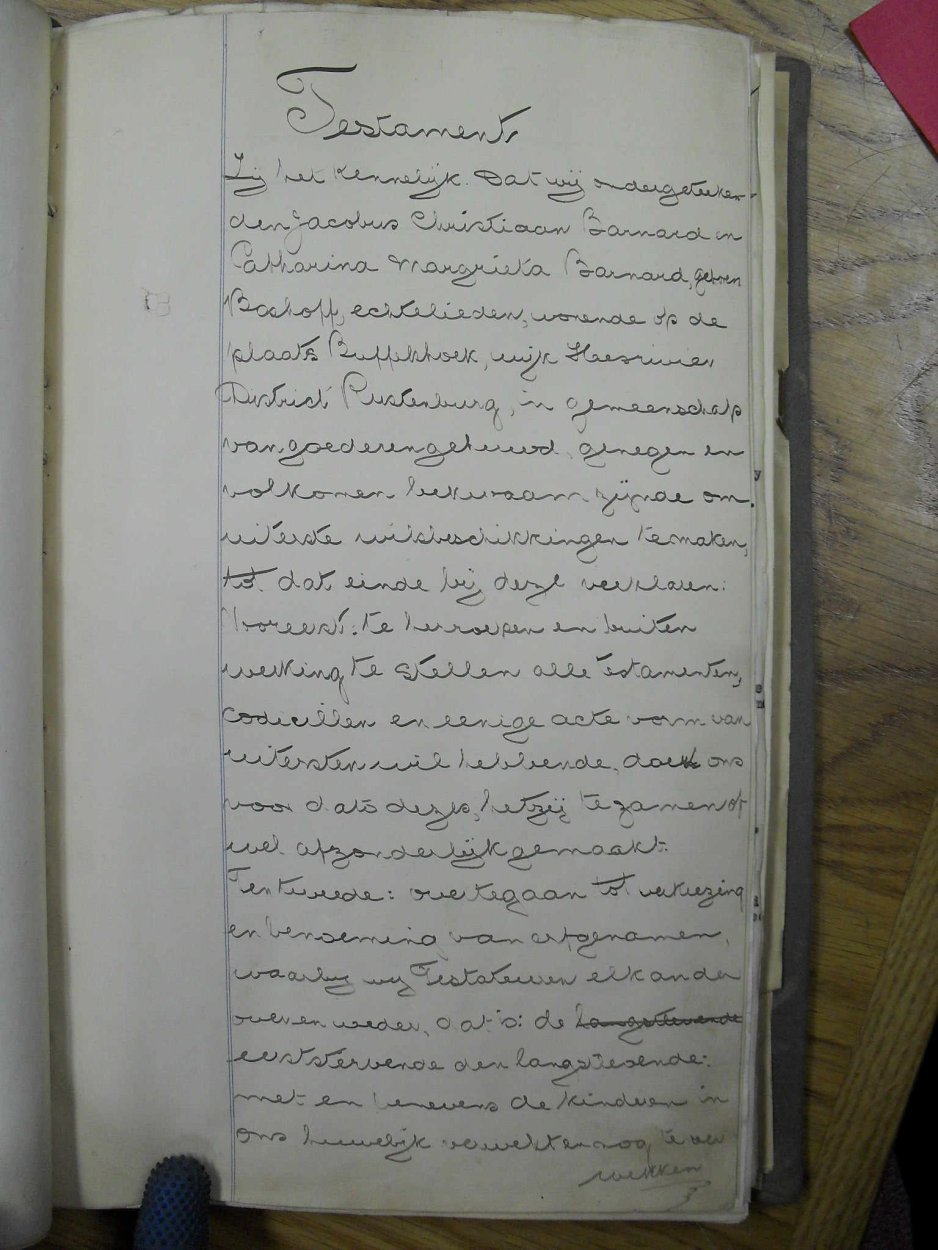 Testament
Zij het Kennelijk. Dat wij ondergeteeken-
den Jacobus Christiaan Barnard en
Catharina Margrieta Barnard, geboren
Boshoff, echtelieden, wonende op de
plaats Buffelshoek, wijk Hexrivier
District Rustenburg, in gemeenschap
van goederen gehuwd, genegen en
volkomen bekwaam zijnde om
uiterste wilsbeschikkingen te maken,
tot dat einde bij deze verklaren:
Vooreerst: te herroepen en buiten
werking te stellen alle Testamenten,
codicillen en eenige acte vorm van
uitersten wil hebbende, door ons
voor dato dezes, hetzij te zamen of
wel afzonderlijk gemaakt:
Ten tweede: over te gaan tot verkiezing
en benoeming van erfgenamen,
waarby wy Testateuren elkander
over en weder, dat is: de langstlevende
eerststervende den langstlevende:
met en benevens de kinderen in
ons huwelijk verwekt en nog te ver
wekken